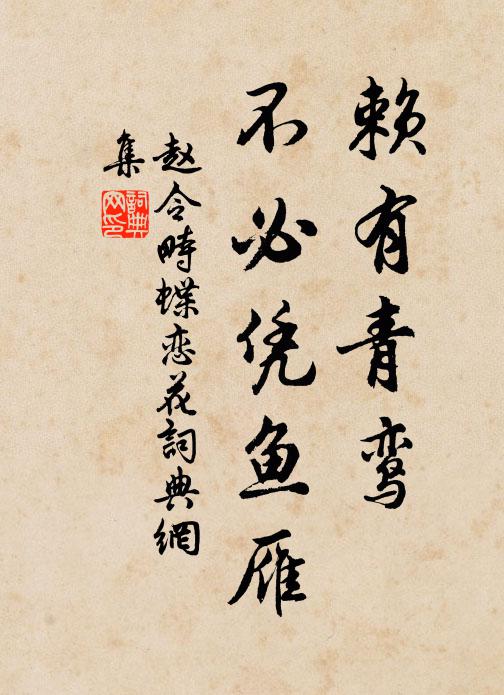 赖有青鸾
不必凭鱼雁
赵令畤蝶恋花词典網
集
詞典网印